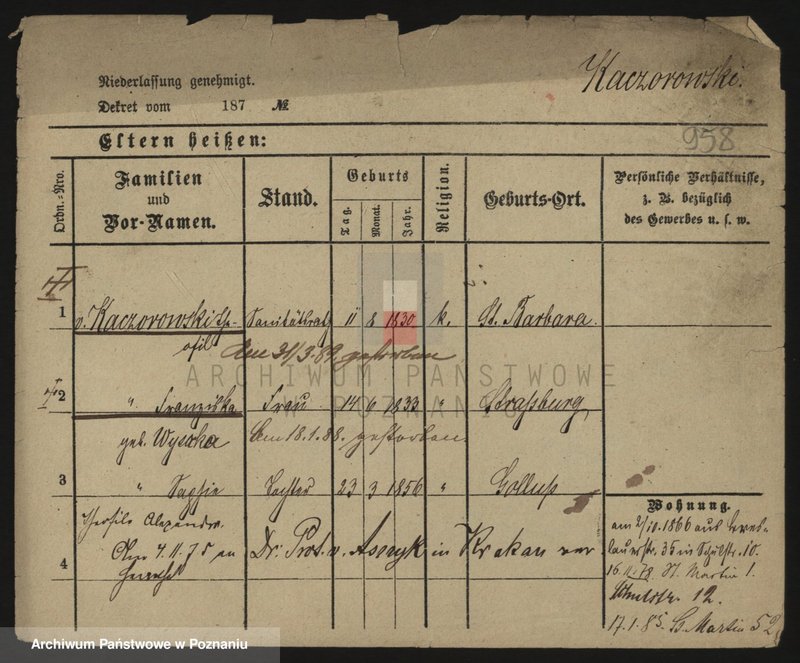 Niederlassung genehmigt.
Dekret vom 187 №
Kaczorowski.
958
Eltern heißen:
Ordn.-Nro.
Familien
und
Vor-Namen.
Stand.
Geburts
Tag.
Monat.
Jahr.
Religion.
Geburts-Ort.
Persönliche Verhältnisse,
z. B. bezüglich
des Gewerbes u. s. w.
1 v. Kaczorowski Th- Sanitätsrath 11 8 1830 k. St. Barbara.
ofil
am 31/3.89. gestorben
ARCHIWUM PAŃSTWOWE
W POZNANIU
2 " Franziska Frau 14 6 1833 " Straßburg
geb. Wysska am 18.1.88. gestorben.
3 " Sophie Tochter 23 3 1856 " Gollup
Wohnung.
Theofile Alexandra
am 2/10.1866 aus Bres-
lauerstr. 35 in Schulstr. 10.
4 7.11.75 an Dr. v. Asnyk in Krakau ver
16.11.78 St. Martin 1.
12.
17.1.85. St. Martin 52
Archiwum Państwowe w Poznaniu